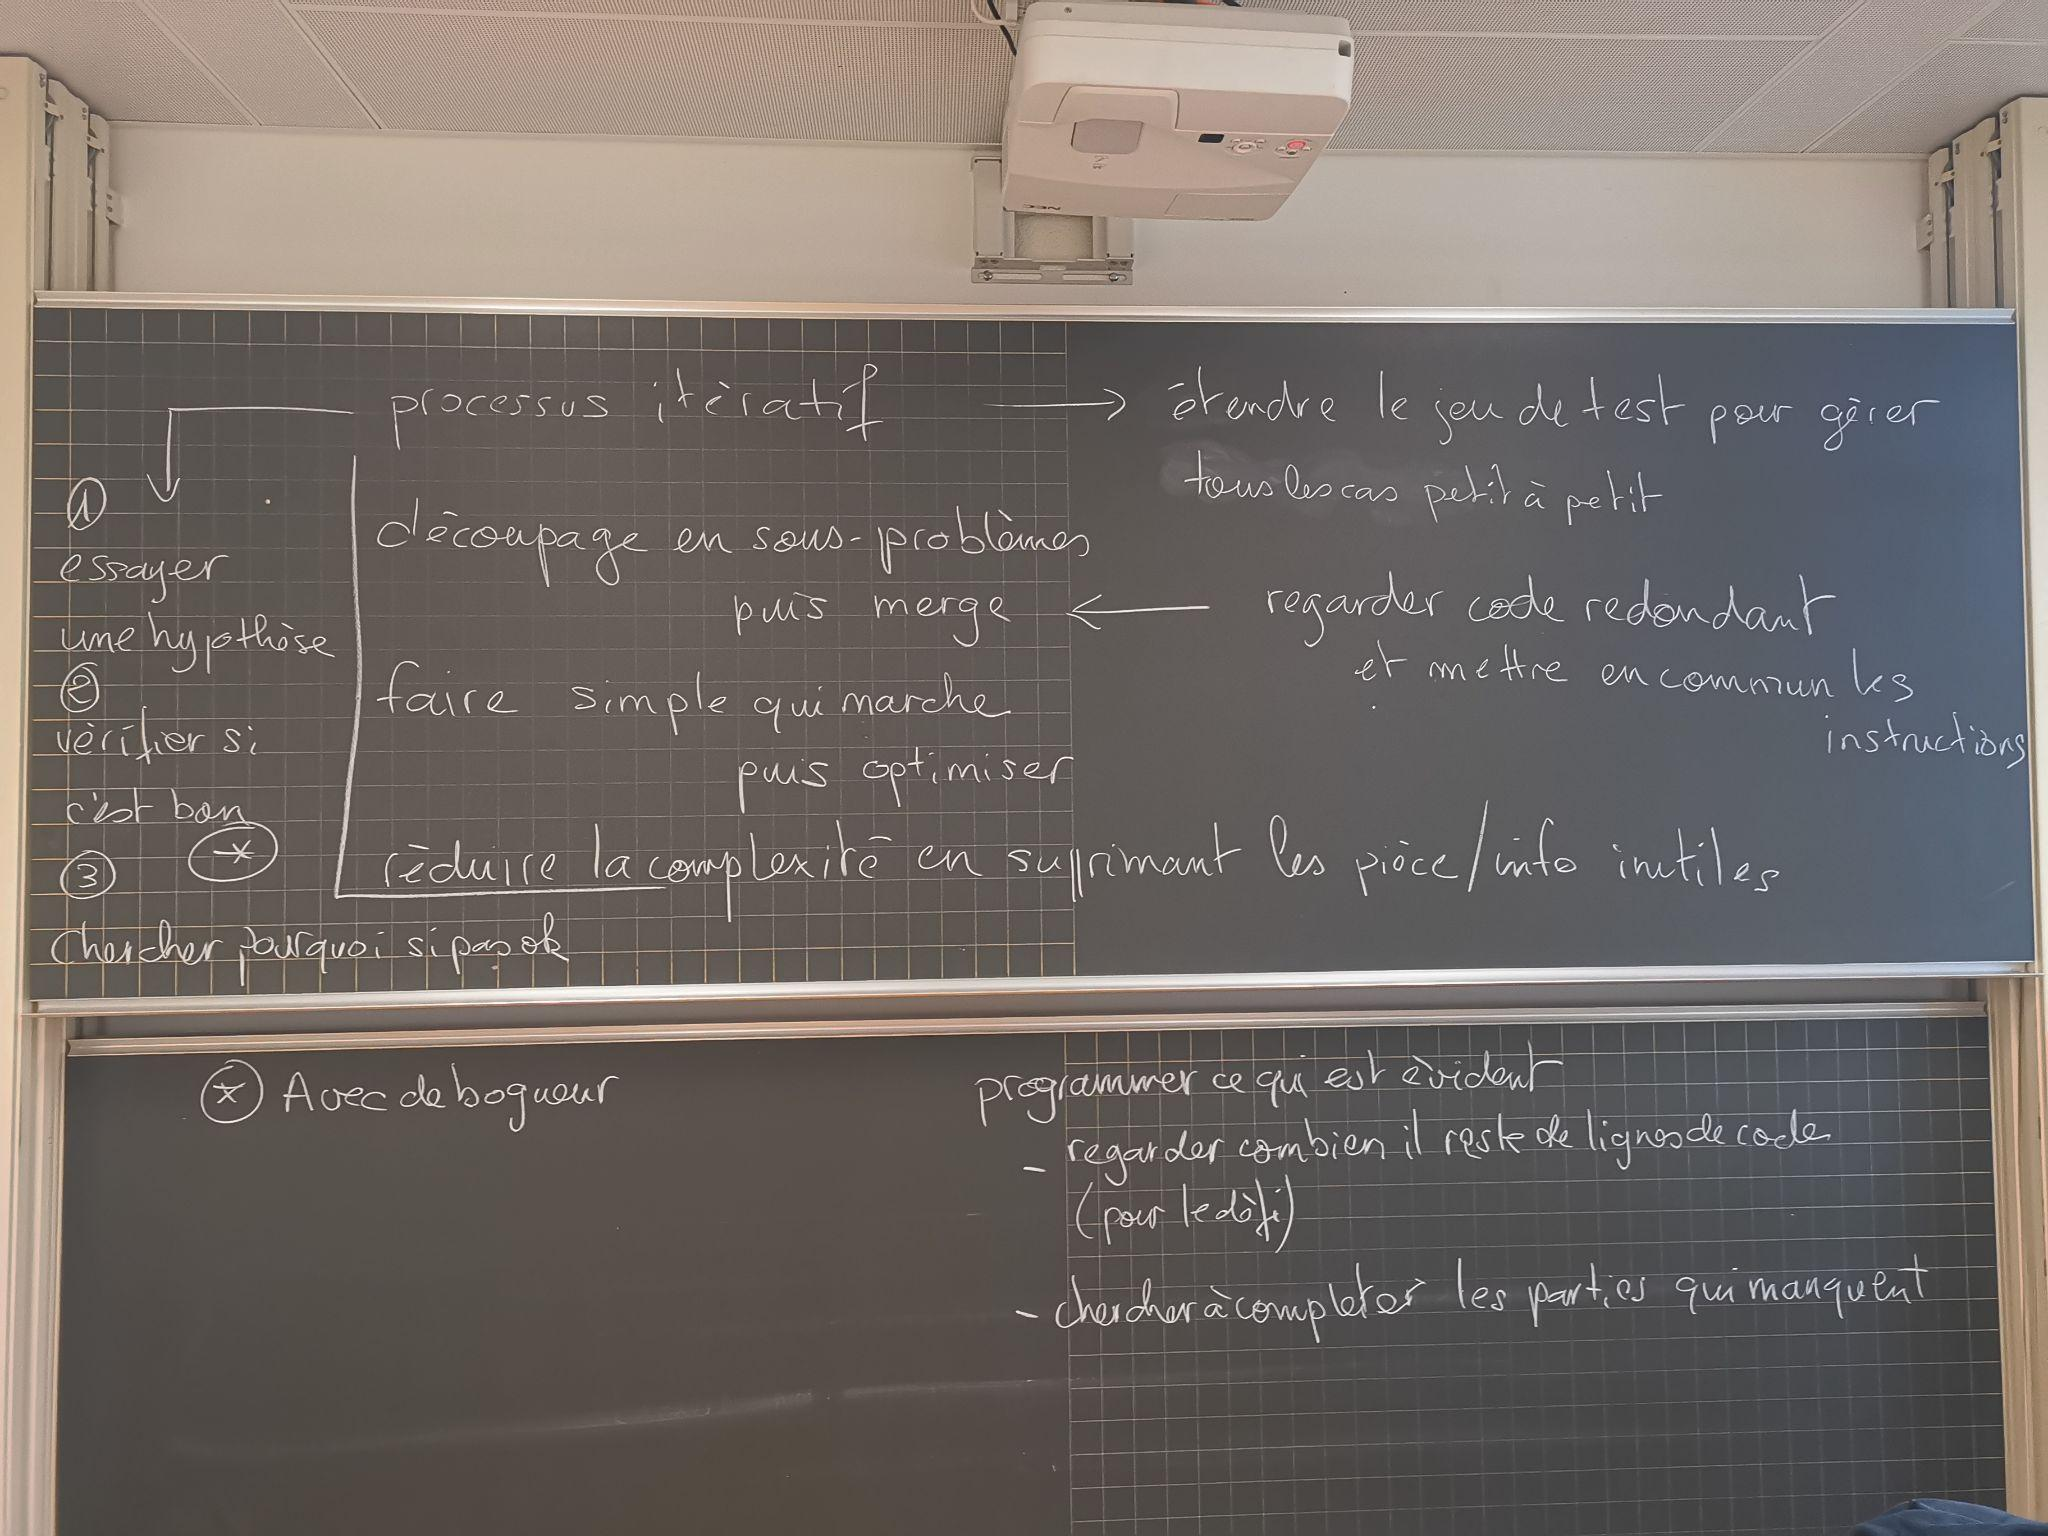 NEC
processus itératif → étendre le jeu de test pour gérer
tous les cas petit à petit
①
essayer
une hypothèse
②
vérifier si
c'est bon
③ *
chercher pourquoi si pas ok
découpage en sous-problèmes
puis merge ← regarder code redondant
et mettre en commun les
instructions
faire simple qui marche
puis optimiser
réduire la complexité en supprimant les pièce/info inutiles
* Avec debogueur
programmer ce qui est évident
- regarder combien il reste de lignes de code
(pour le défi)
- chercher à completer les parties qui manquent